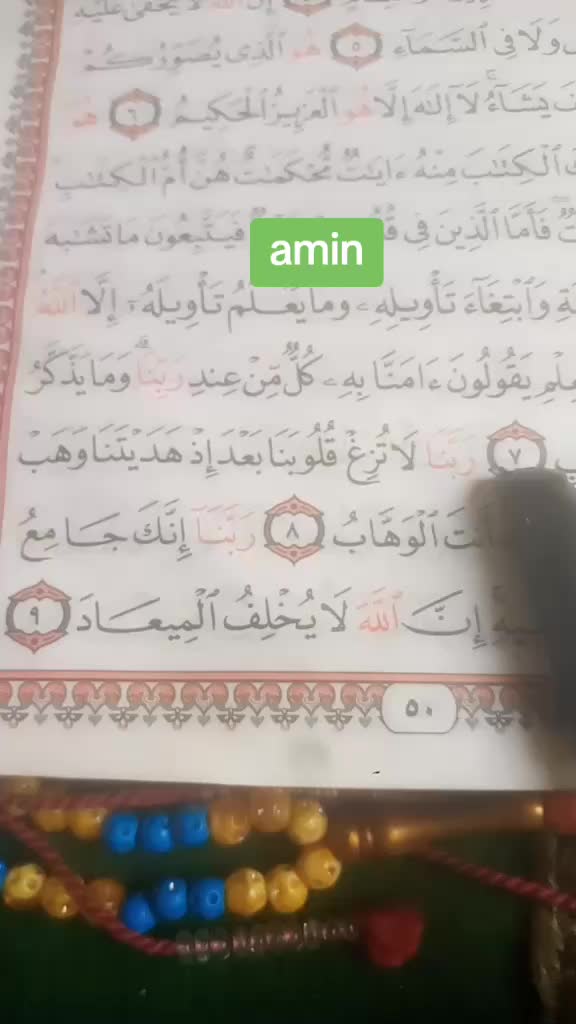 وَلَا فِى ٱلسَّمَآءِ ٥ هُوَ ٱلَّذِى يُصَوِّرُكُمْ
يَشَآءُ لَآ إِلَٰهَ إِلَّا هُوَ ٱلْعَزِيزُ ٱلْحَكِيمُ ٦ هُوَ
ٱلْكِتَٰبَ مِنْهُ ءَايَٰتٌ مُّحْكَمَٰتٌ هُنَّ أُمُّ ٱلْكِتَٰبِ
فَأَمَّا ٱلَّذِينَ فِى فَيَتَّبِعُونَ مَا تَشَٰبَهَ
amin
وَٱبْتِغَآءَ تَأْوِيلِهِۦ وَمَا يَعْلَمُ تَأْوِيلَهُۥٓ إِلَّا ٱللَّهُ
يَقُولُونَ ءَامَنَّا بِهِۦ كُلٌّ مِّنْ عِندِ رَبِّنَا ۗ وَمَا يَذَّكَّرُ
٧ رَبَّنَا لَا تُزِغْ قُلُوبَنَا بَعْدَ إِذْ هَدَيْتَنَا وَهَبْ
أَنتَ ٱلْوَهَّابُ ٨ رَبَّنَآ إِنَّكَ جَامِعُ
إِنَّ ٱللَّهَ لَا يُخْلِفُ ٱلْمِيعَادَ ٩
٥٠